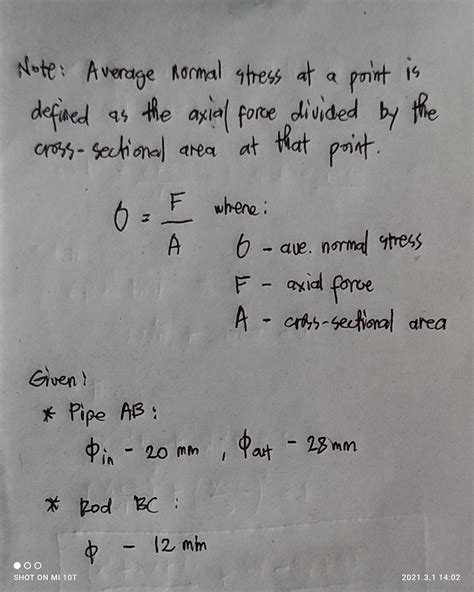 Note: Average normal stress at a point is
defined as the axial force divided by the
cross-sectional area at that point.
σ = F/A where:
σ - ave. normal stress
F - axial force
A - cross-sectional area
Given:
* Pipe AB:
ϕin - 20 mm , ϕout - 28mm
* Rod BC :
ϕ - 12 mm
SHOT ON MI 10T
2021.3.1 14:02